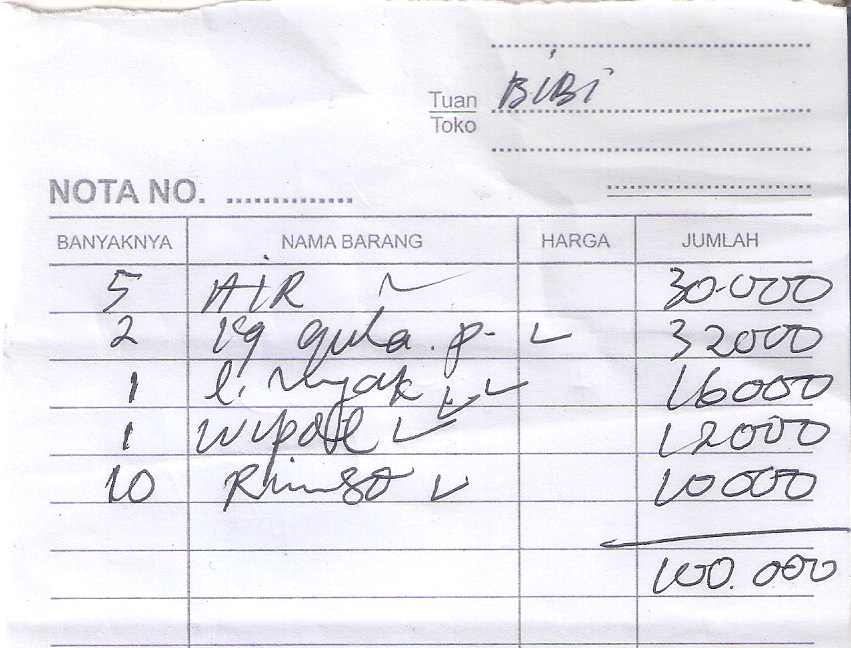 Tuan BiBi
Toko
NOTA NO. ..............
BANYAKNYA NAMA BARANG HARGA JUMLAH
5 AIR 30.000
2 kg gula. p. 32000
1 l. minyak 16000
1 wipol 12000
10 Rinso 10000
100.000